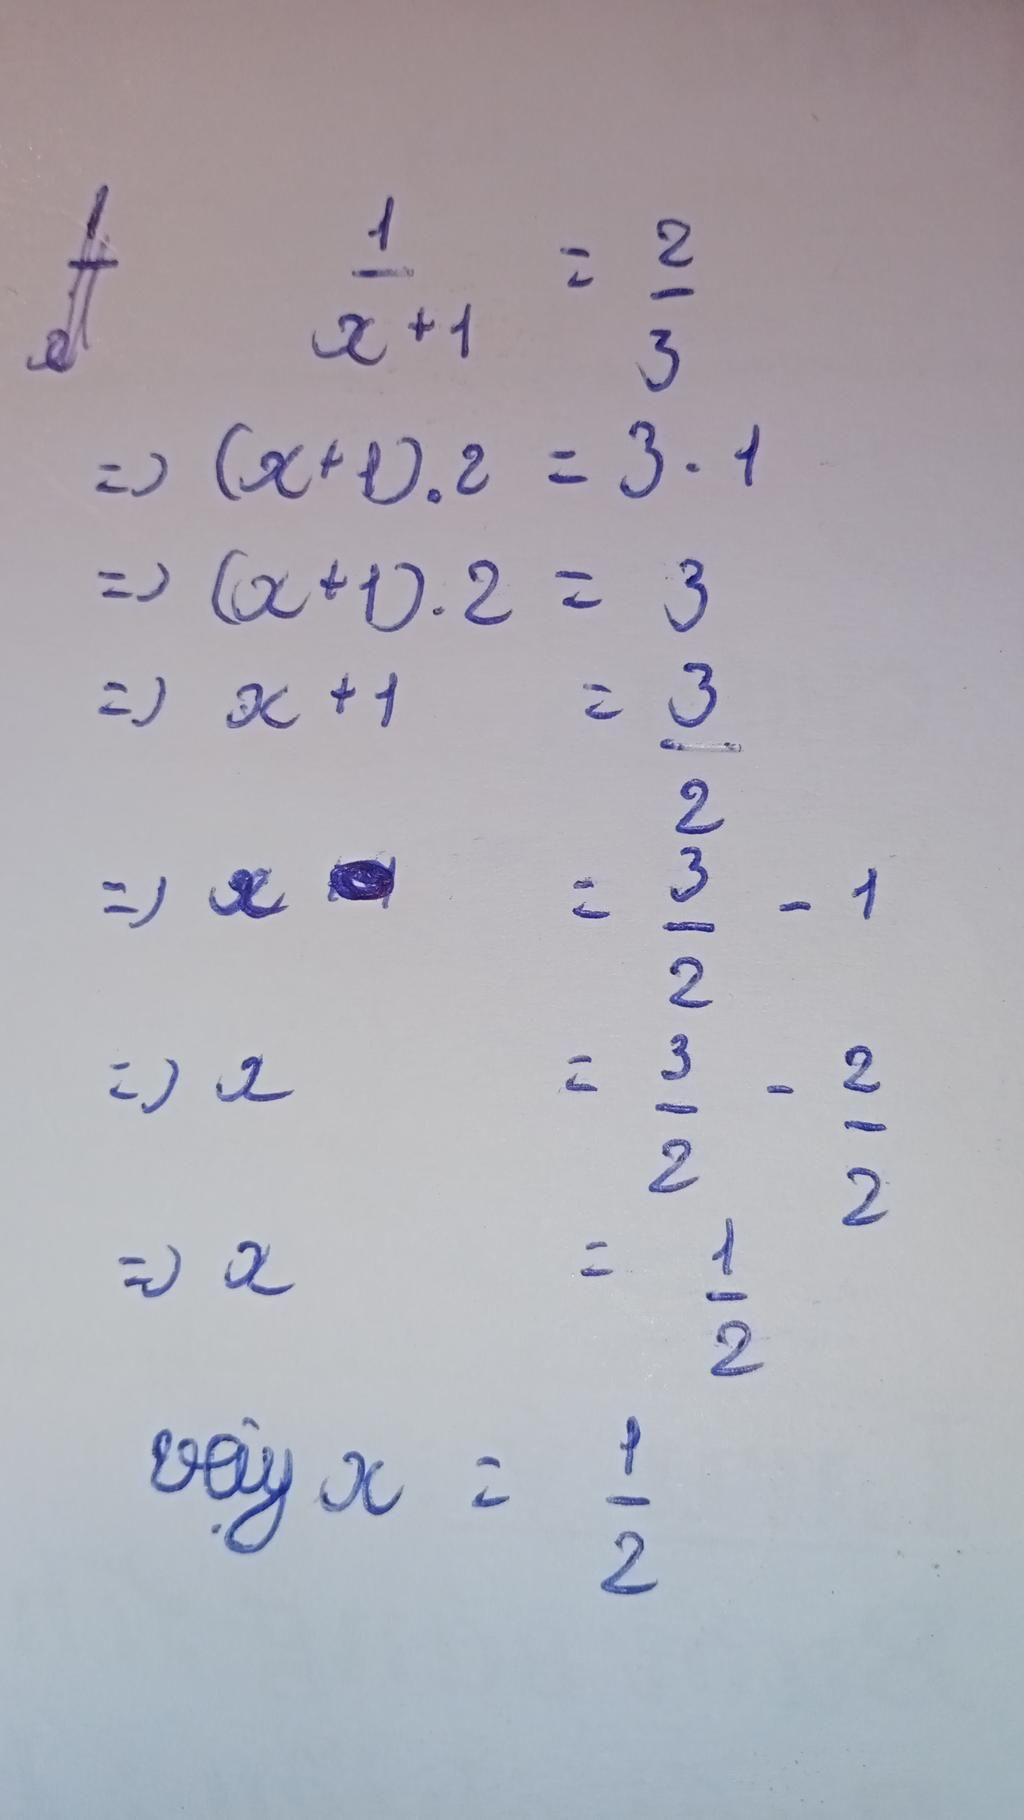 1/(x+1) = 2/3
=> (x+1).2 = 3.1
=> (x+1).2 = 3
=> x+1 = 3/2
=> x = 3/2 - 1
=> x = 3/2 - 2/2
=> x = 1/2
vậy x = 1/2